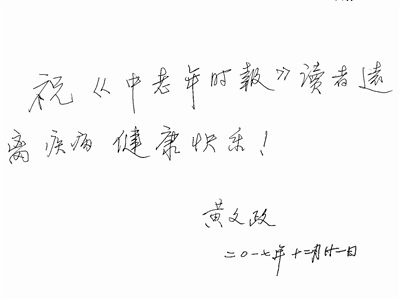 祝《中老年时报》读者远
离疾病健康快乐！
黄文政
二〇一七年十二月廿一日